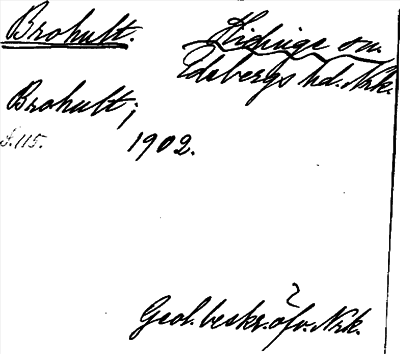 Brohult. Hidinge sn.
Edsbergs hd. Nrk.
Brohult;
s. 115. 1902.
Geol. beskr. öfv. Nrk.